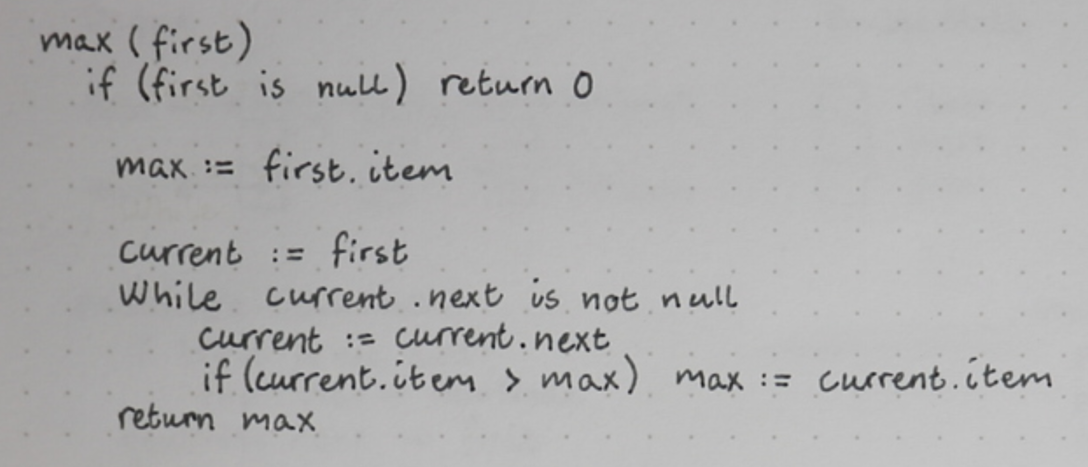 max (first)
if (first is null) return 0
max := first.item
current := first
While current.next is not null
current := current.next
if (current.item > max) max := current.item
return max